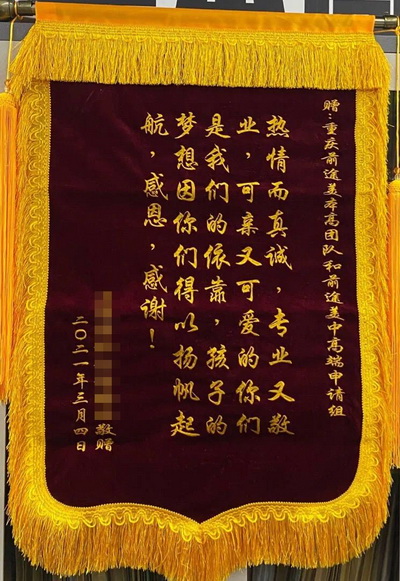 赠：重庆前途美本高团队和前途美中高端申请组
热情而真诚，专业又敬
业，可亲又可爱的你们
是我们的依靠，孩子的
梦想因你们得以扬帆起
航，感恩，感谢！
敬赠
二〇二一年三月四日